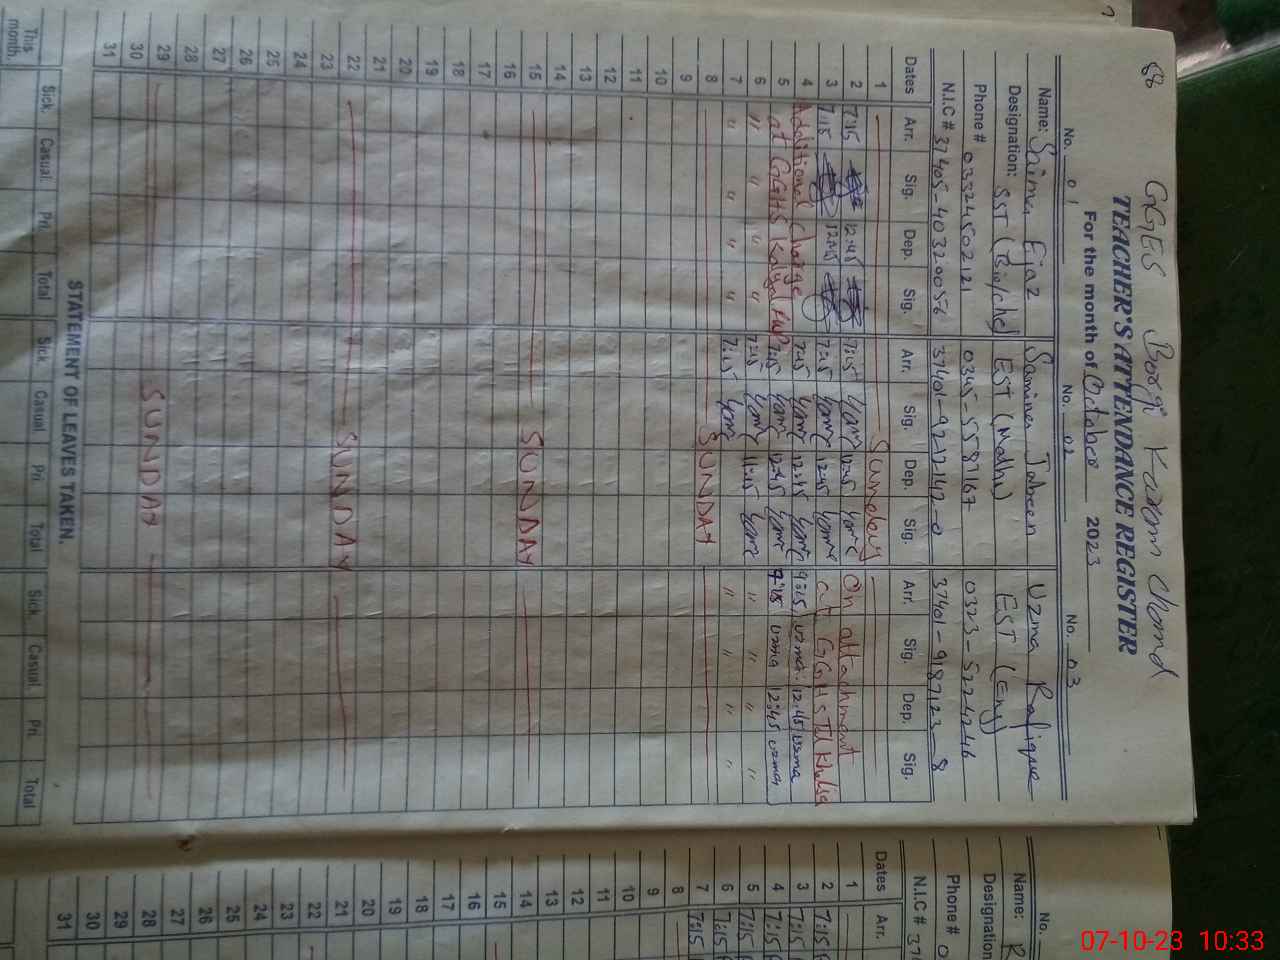 58
GGES
TEACHER'S ATTENDANCE REGISTER
For the month of October 2023
No. 01 No. 02 No. 03
Name: Saima Ejaz Samina Jabeen Uzma Rafique
Designation: SST (Bio/che) EST (Math) EST (Eng)
Phone # 03324502121 0345-5587167
N.I.C # 37405-4032005-6
Dates Arr. Sig. Dep. Sig. Arr. Sig. Dep. Sig. Arr. Sig. Dep. Sig.
1 Sunday
2 7:15 12:45 7:15 12:45 On attachment
3 7:15 12:45 7:15 12:45 at GGHS
4 Additional charge 7:15 12:45 12:45 uzma
5 at GGHS 7:15 12:45 uzma 12:45 uzma
6 " " " " 7:15 11:45 " " " "
7 " " " " 7:15 " " " "
8 SUNDAY
9
10
11
12
13
14
15 SUNDAY
16
17
18
19
20
21
22 SUNDAY
23
24
25
26
27
28
29 SUNDAY
30
31
STATEMENT OF LEAVES TAKEN.
Sick. Casual. Pri. Total Sick. Casual Pri Total Sick. Casual Pri. Total
This month.
No.
Name: R
Designation
Phone # 0
N.I.C # 37
Dates Arr.
1
2 7:15
3 7:15
4 7:15
5 7:15
6 7:15
7 7:15
8
9
10
11
12
13
14
15
16
17
18
19
20
21
22
23
24
25
26
27
28
29
30
31
07-10-23 10:33